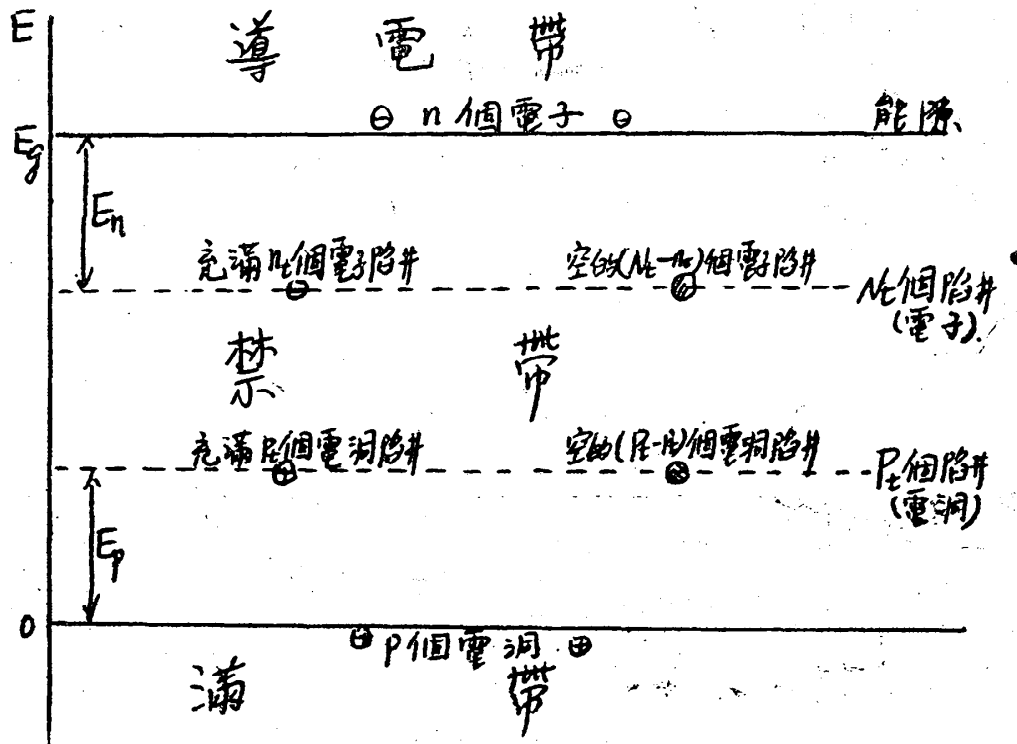 E
導 電 帶
⊖ n 個電子 ⊖ 能隙
Eg
En
充滿nt個電子陷井 空的(Nt-nt)個電子陷井
Nt個陷井
(電子)
禁 帶
充滿Pt個電洞陷井 空的(Pt-Pt)個電洞陷井
Pt個陷井
(電洞)
Ep
0
⊕ P個電洞 ⊕
滿 帶